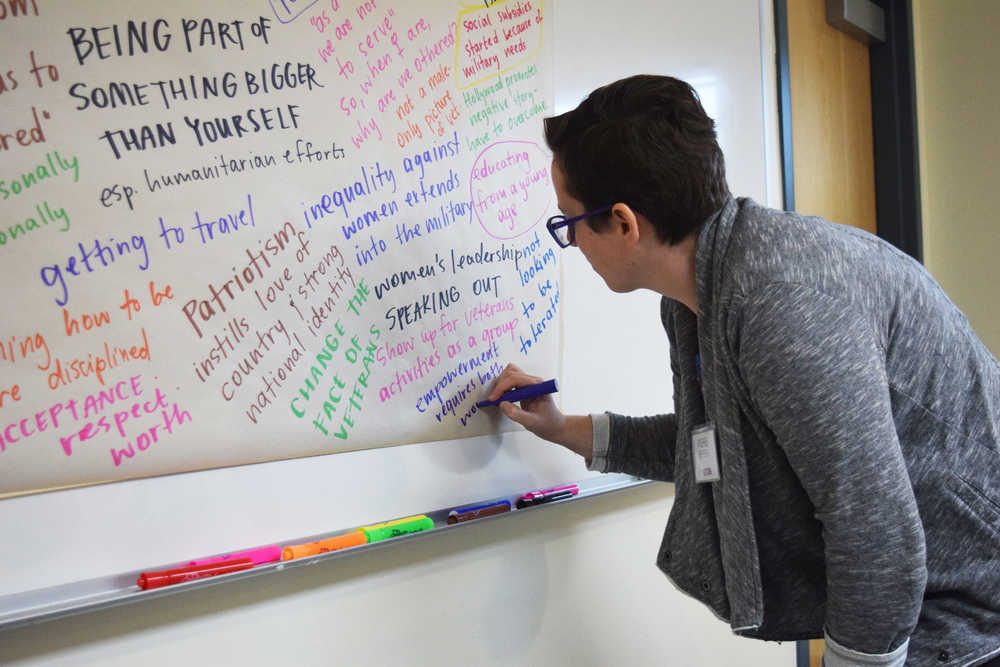 as to
ered"
sonally
onally
BEING PART OF
SOMETHING BIGGER
THAN YOURSELF
esp. humanitarian efforts
getting to travel
how to be
disciplined
ACCEPTANCE
respect
worth
Patriotism
instills love of
country & strong
national identity
inequality against
women extends
into the military
"as a
we are not
to serve"
So, when I are,
why are we othered?
not a male
only picture
of vet
social subsidies
started because of
military needs
Hollywood promotes
negative story-
have to overcome
educating
from a young
age
women's leadership
SPEAKING OUT
not
looking
to be
tolerated
CHANGE THE
FACE OF
VETERANS
Show up for veterans
activities as a group
empowerment
requires both